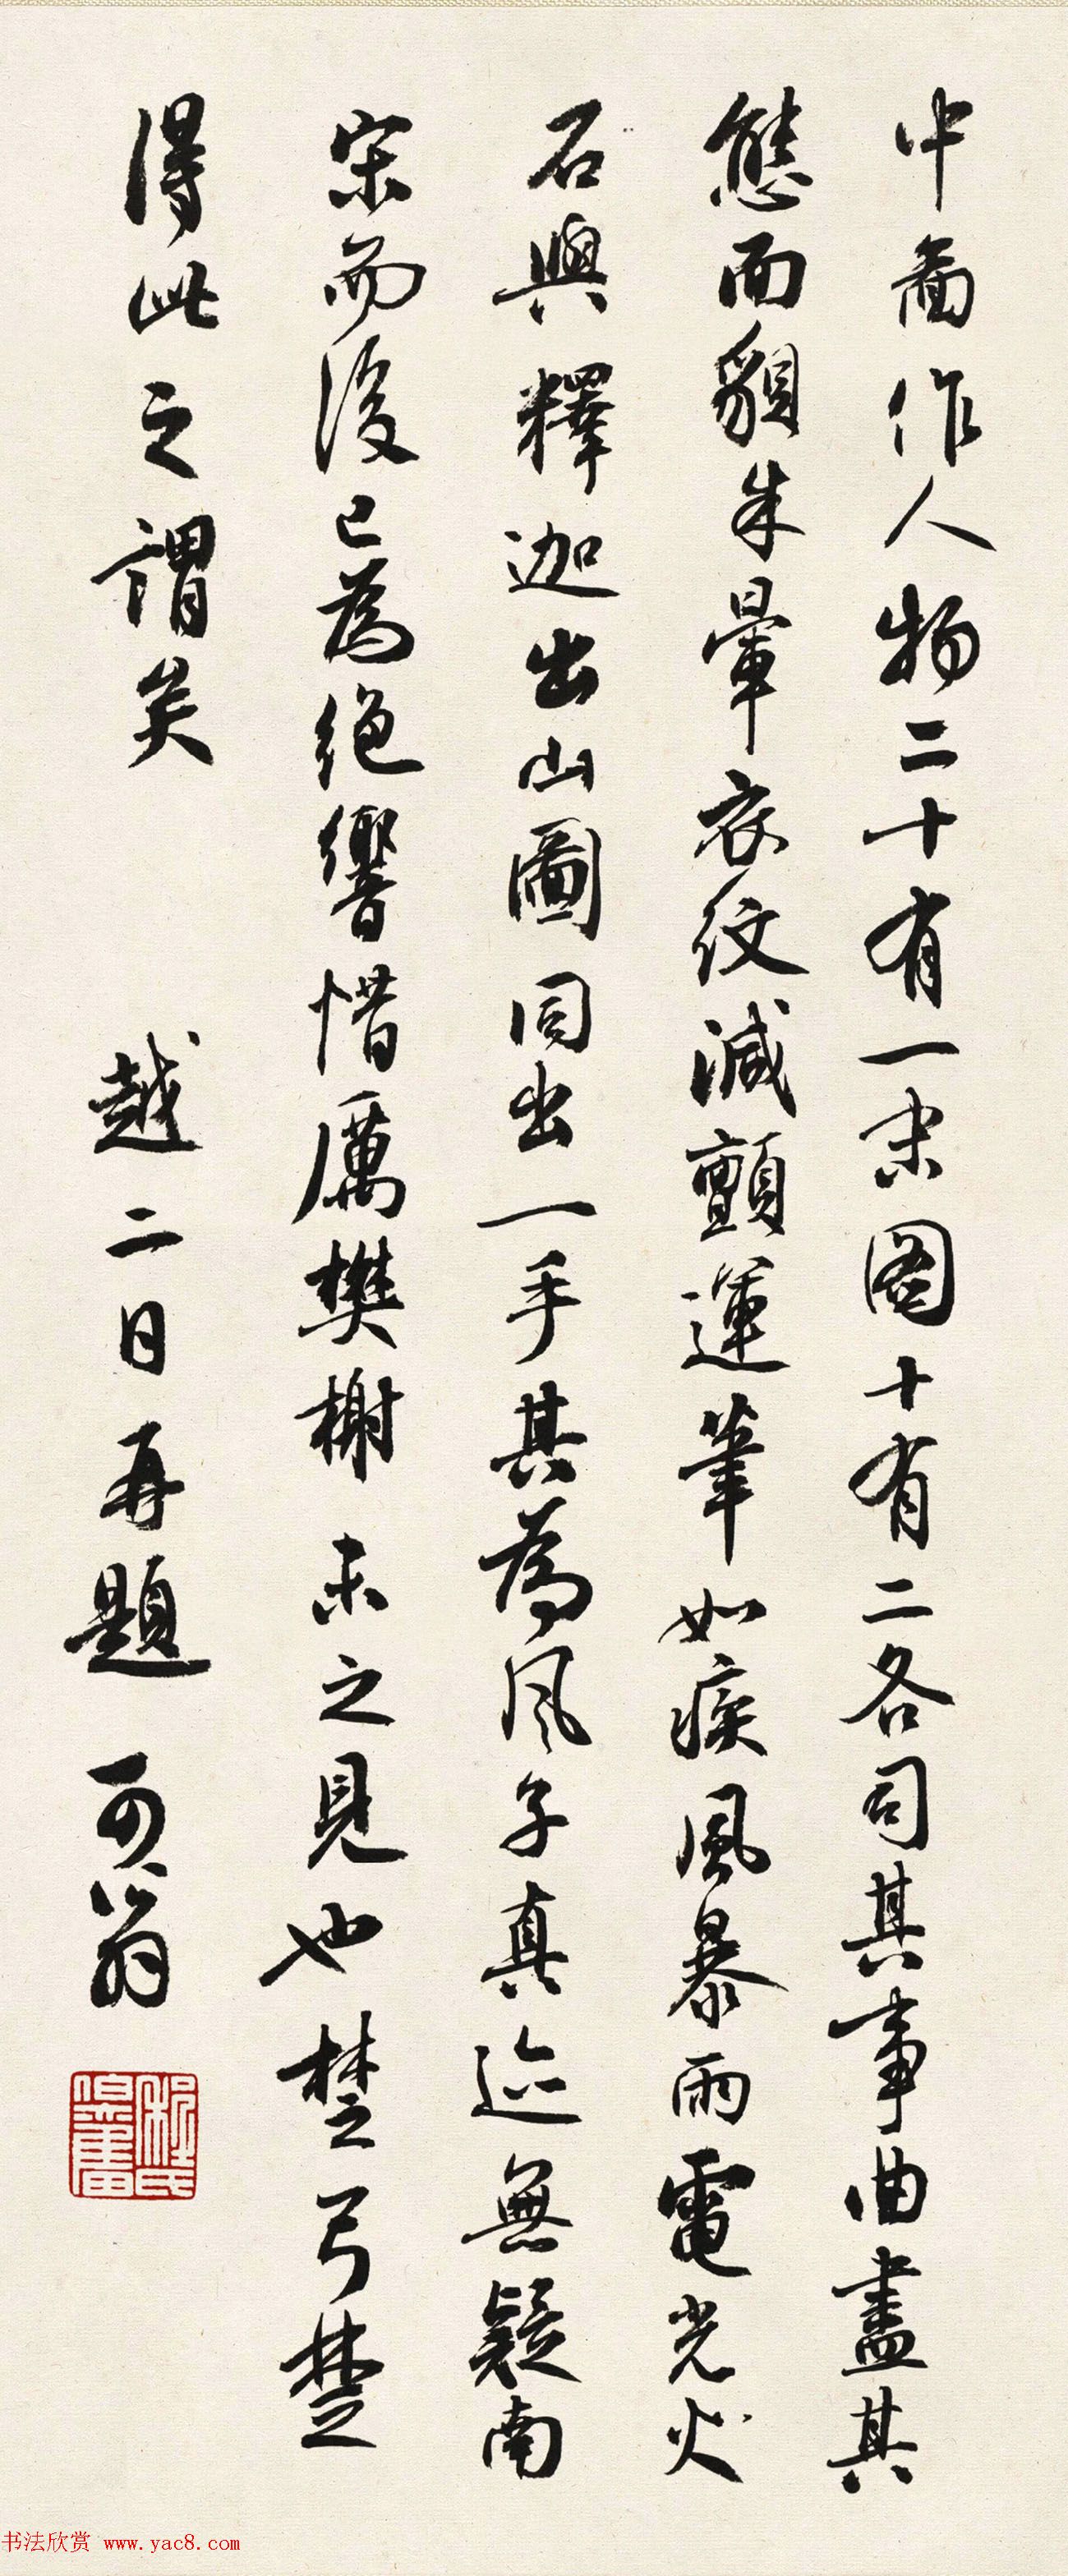 中啚作人物二十有一宋图十有二各司其事曲盡其
態而貌朱暈衣紋減顫運筆如疾風暴雨電光火
石與釋迦出山圖同出一手其為风子真迹無疑南
宋而後已為绝響惜厲樊榭未之見也楚弓楚
得此之謂矣
越二日再題 可翁
书法欣赏 www.yac8.com